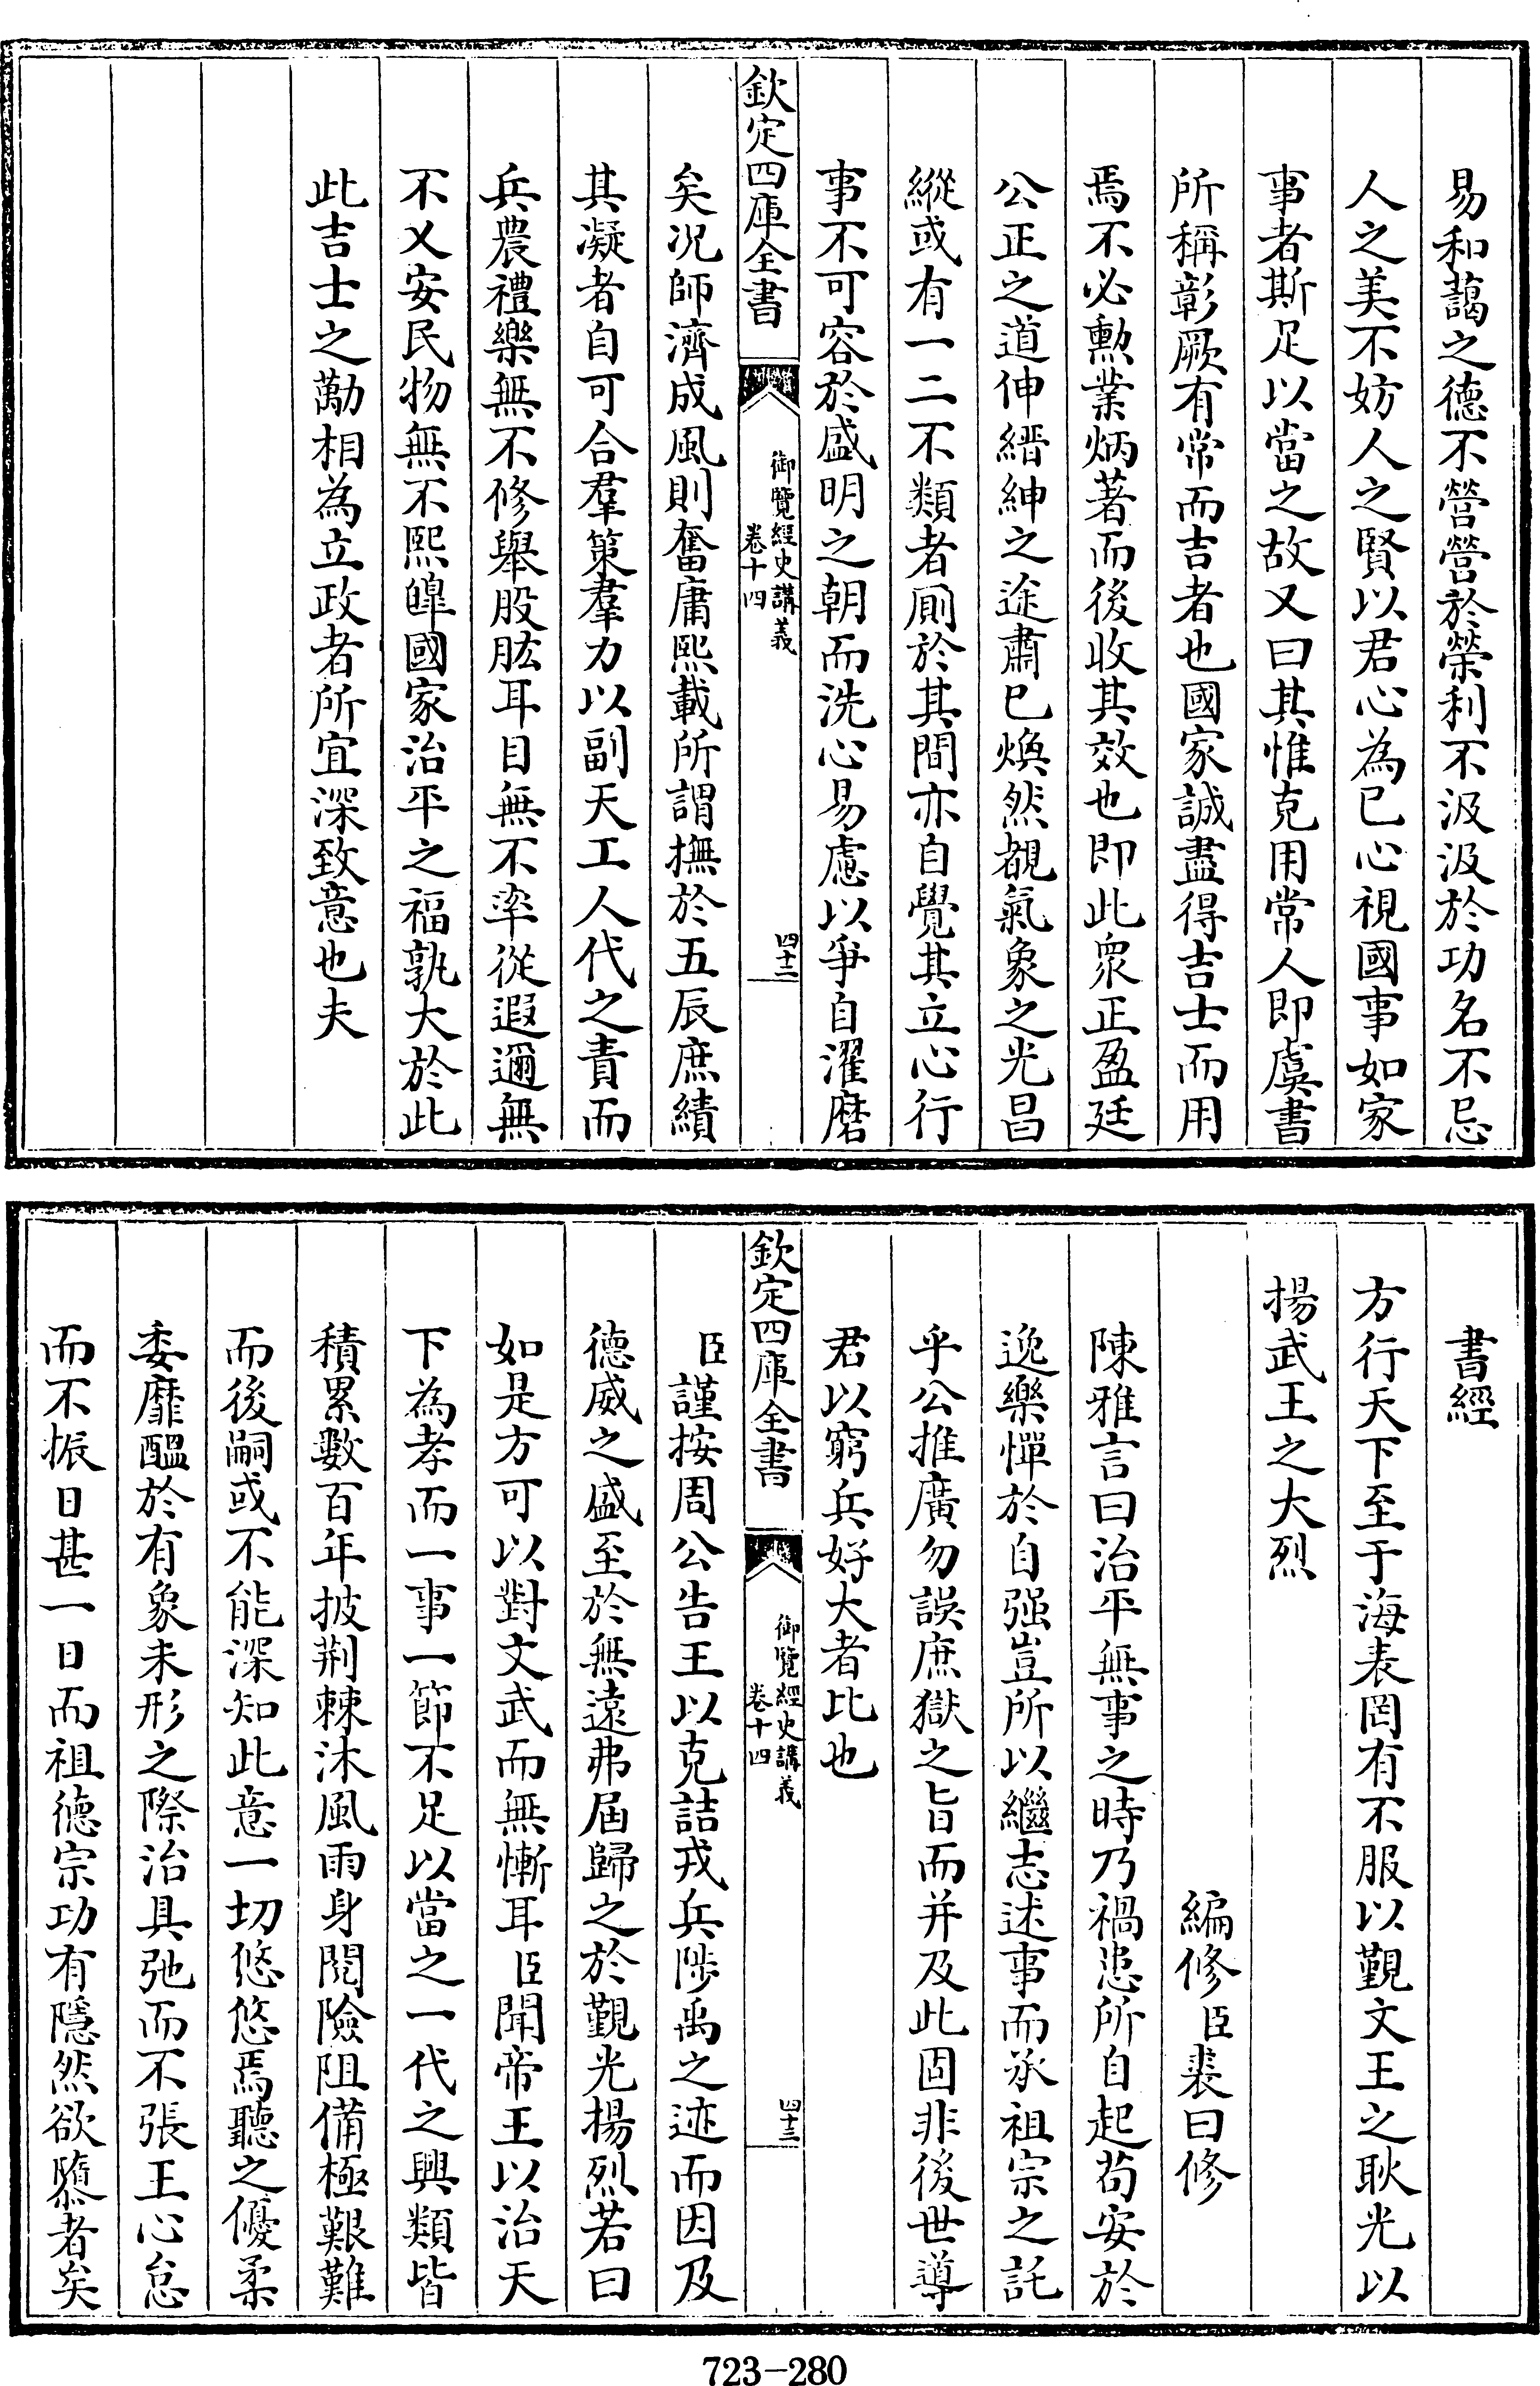 易和藹之德不營營於榮利不汲汲於功名不忌
人之美不妨人之賢以君心為已心視國事如家
事者斯足以當之故又曰其惟克用常人即虞書
所稱彰厥有常而吉者也國家誠盡得吉士而用
焉不必勲業炳著而後收其效也即此衆正盈廷
公正之道伸縉紳之途肅已煥然覩氣象之光昌
縱或有一二不類者厠於其間亦自覺其立心行
事不可容於盛明之朝而洗心易慮以爭自濯磨
欽定四庫全書
御覽經史講義
卷十四
四十三
矣况師濟成風則奮庸熙載所謂撫於五辰庶績
其凝者自可合羣策羣力以副天工人代之責而
兵農禮樂無不修舉股肱耳目無不率從遐邇無
不乂安民物無不熙皥國家治平之福孰大於此
此吉士之勱相為立政者所宜深致意也夫
書經
方行天下至于海表罔有不服以覲文王之耿光以
揚武王之大烈
編修臣裘曰修
陳雅言曰治平無事之時乃禍患所自起茍安於
逸樂憚於自强豈所以繼志述事而承祖宗之託
乎公推廣勿誤庶獄之旨而并及此固非後世導
君以窮兵好大者比也
欽定四庫全書
御覽經史講義
卷十四
四十三
臣謹按周公告王以克詰戎兵陟禹之迹而因及
德威之盛至於無遠弗屆歸之於覲光揚烈若曰
如是方可以對文武而無慚耳臣聞帝王以治天
下為孝而一事一節不足以當之一代之興類皆
積累數百年披荆棘沐風雨身閱險阻備極艱難
而後嗣或不能深知此意一切悠悠焉聽之優柔
委靡醞於有象未形之際治具弛而不張王心怠
而不振日甚一日而祖德宗功有隱然欲隳者矣
723-280